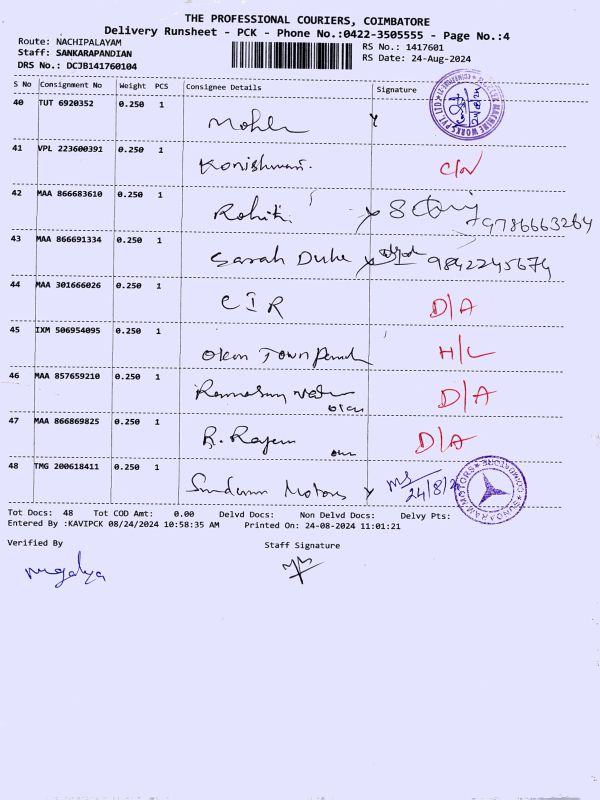 THE PROFESSIONAL COURIERS, COIMBATORE
Delivery Runsheet - PCK - Phone No.:0422-3505555 - Page No.:4
Route: NACHIPALAYAM RS No.: 1417601
Staff: SANKARAPANDIAN RS Date: 24-Aug-2024
DRS No.: DCJB141760104
S No Consignment No Weight PCS Consignee Details Signature
40 TUT 6920352 0.250 1
41 VPL 223600391 0.250 1
42 MAA 866683610 0.250 1 Rohit 9786663264
43 MAA 866691334 0.250 1 Sarah Duke 9842245674
44 MAA 301666026 0.250 1 CIR D/A
45 IXM 506954095 0.250 1 Town H/L
46 MAA 857659210 0.250 1 D/A
47 MAA 866869825 0.250 1 R. D/A
48 TMG 200618411 0.250 1 Sundaram Motors 24/8/24 SUNDARAM MOTORS COIMBATORE
Tot Docs: 48 Tot COD Amt: 0.00 Delvd Docs: Non Delvd Docs: Delvy Pts:
Entered By :KAVIPCK 08/24/2024 10:58:35 AM Printed On: 24-08-2024 11:01:21
Verified By Staff Signature